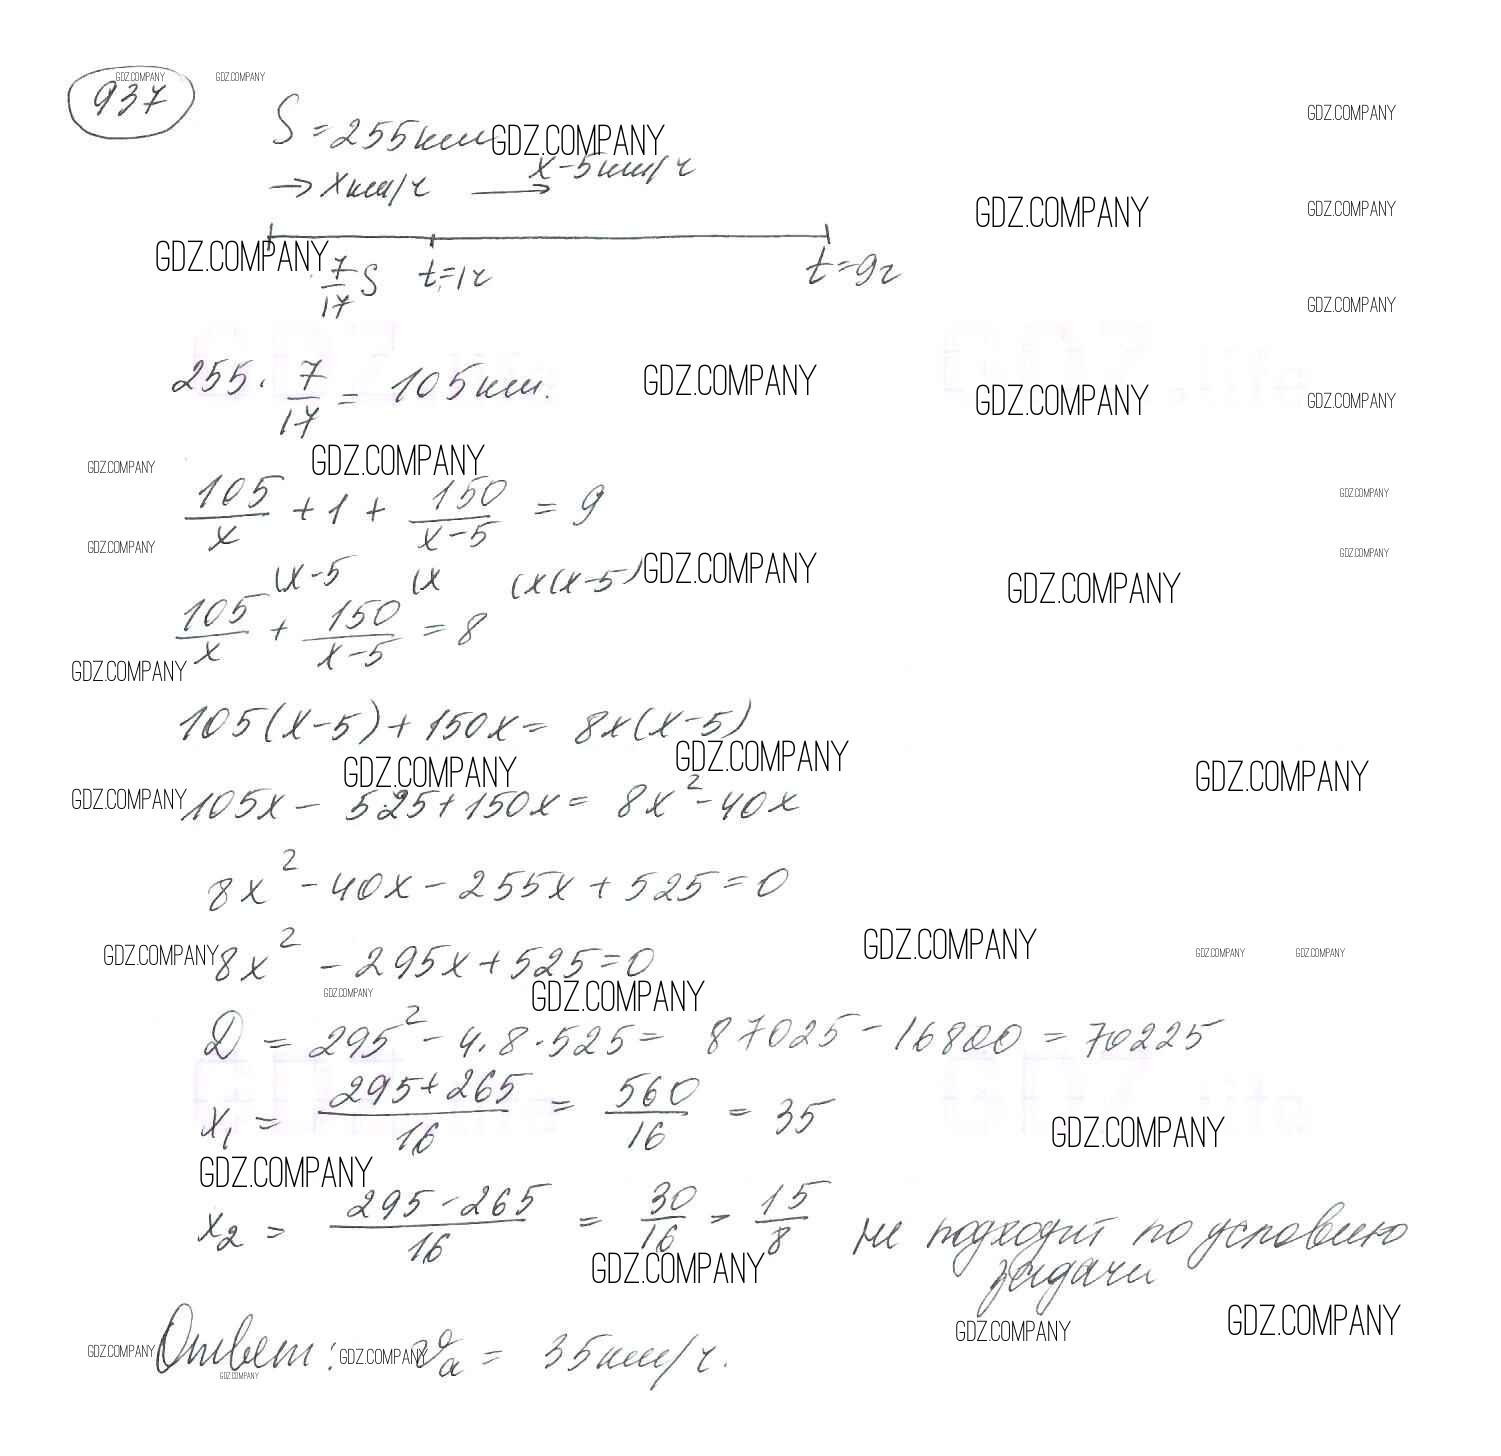 GDZ.COMPANY GDZ.COMPANY
937
S = 255 км GDZ.COMPANY GDZ.COMPANY
→ x км/ч → x - 5 км/ч
GDZ.COMPANY GDZ.COMPANY
GDZ.COMPANY 7/17 S t = 1ч t = 9ч
GDZ.COMPANY
255 · 7/17 = 105 км. GDZ.COMPANY GDZ.COMPANY GDZ.COMPANY
GDZ.COMPANY GDZ.COMPANY
105/x + 1 + 150/(x-5) = 9 GDZ.COMPANY
GDZ.COMPANY GDZ.COMPANY
(x-5 (x (x(x-5) GDZ.COMPANY GDZ.COMPANY
105/x + 150/(x-5) = 8
GDZ.COMPANY
105(x-5) + 150x = 8x(x-5)
GDZ.COMPANY GDZ.COMPANY GDZ.COMPANY
GDZ.COMPANY 105x - 525 + 150x = 8x² - 40x
8x² - 40x - 255x + 525 = 0
GDZ.COMPANY 8x² - 295x + 525 = 0 GDZ.COMPANY GDZ.COMPANY GDZ.COMPANY
GDZ.COMPANY GDZ.COMPANY
D = 295² - 4 · 8 · 525 = 87025 - 16800 = 70225
x₁ = (295+265)/16 = 560/16 = 35 GDZ.COMPANY
GDZ.COMPANY
x₂ = (295-265)/16 = 30/16 = 15/8 не подходит по условию
задачи
GDZ.COMPANY
GDZ.COMPANY GDZ.COMPANY
GDZ.COMPANY Ответ: GDZ.COMPANY vа = 35 км/ч.
GDZ.COMPANY